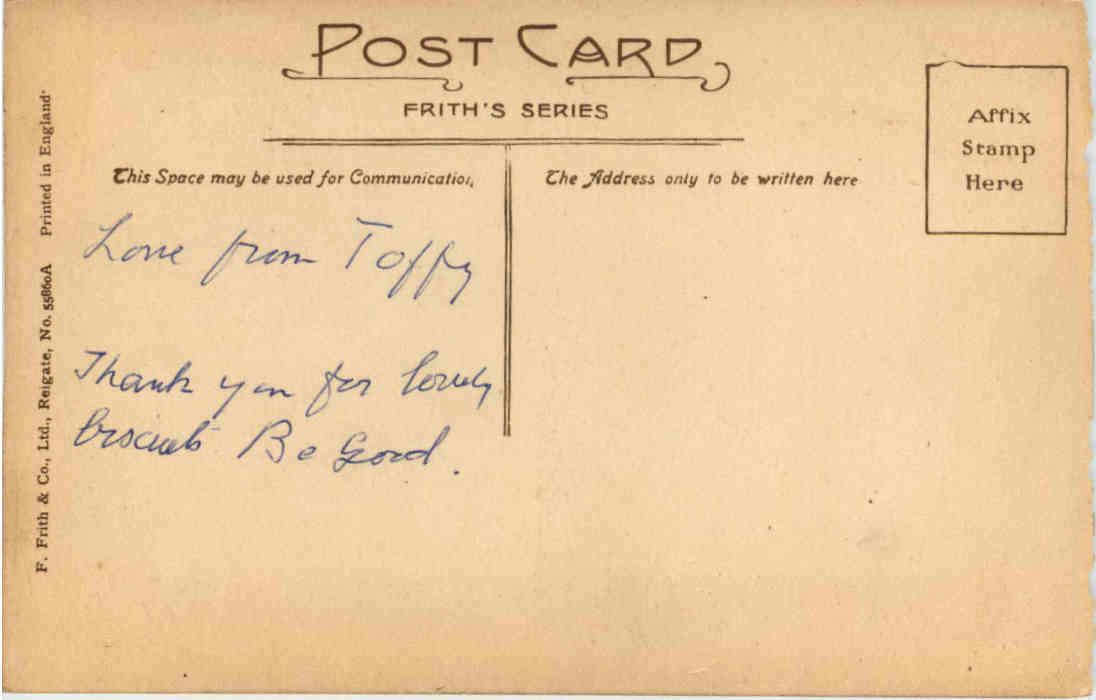 POST CARD
FRITH'S SERIES
This Space may be used for Communication
The Address only to be written here
Affix
Stamp
Here
Love from Toffy
Thank you for lovely
biscuits Be Good.
F. Frith & Co., Ltd., Reigate, No. 55860A Printed in England